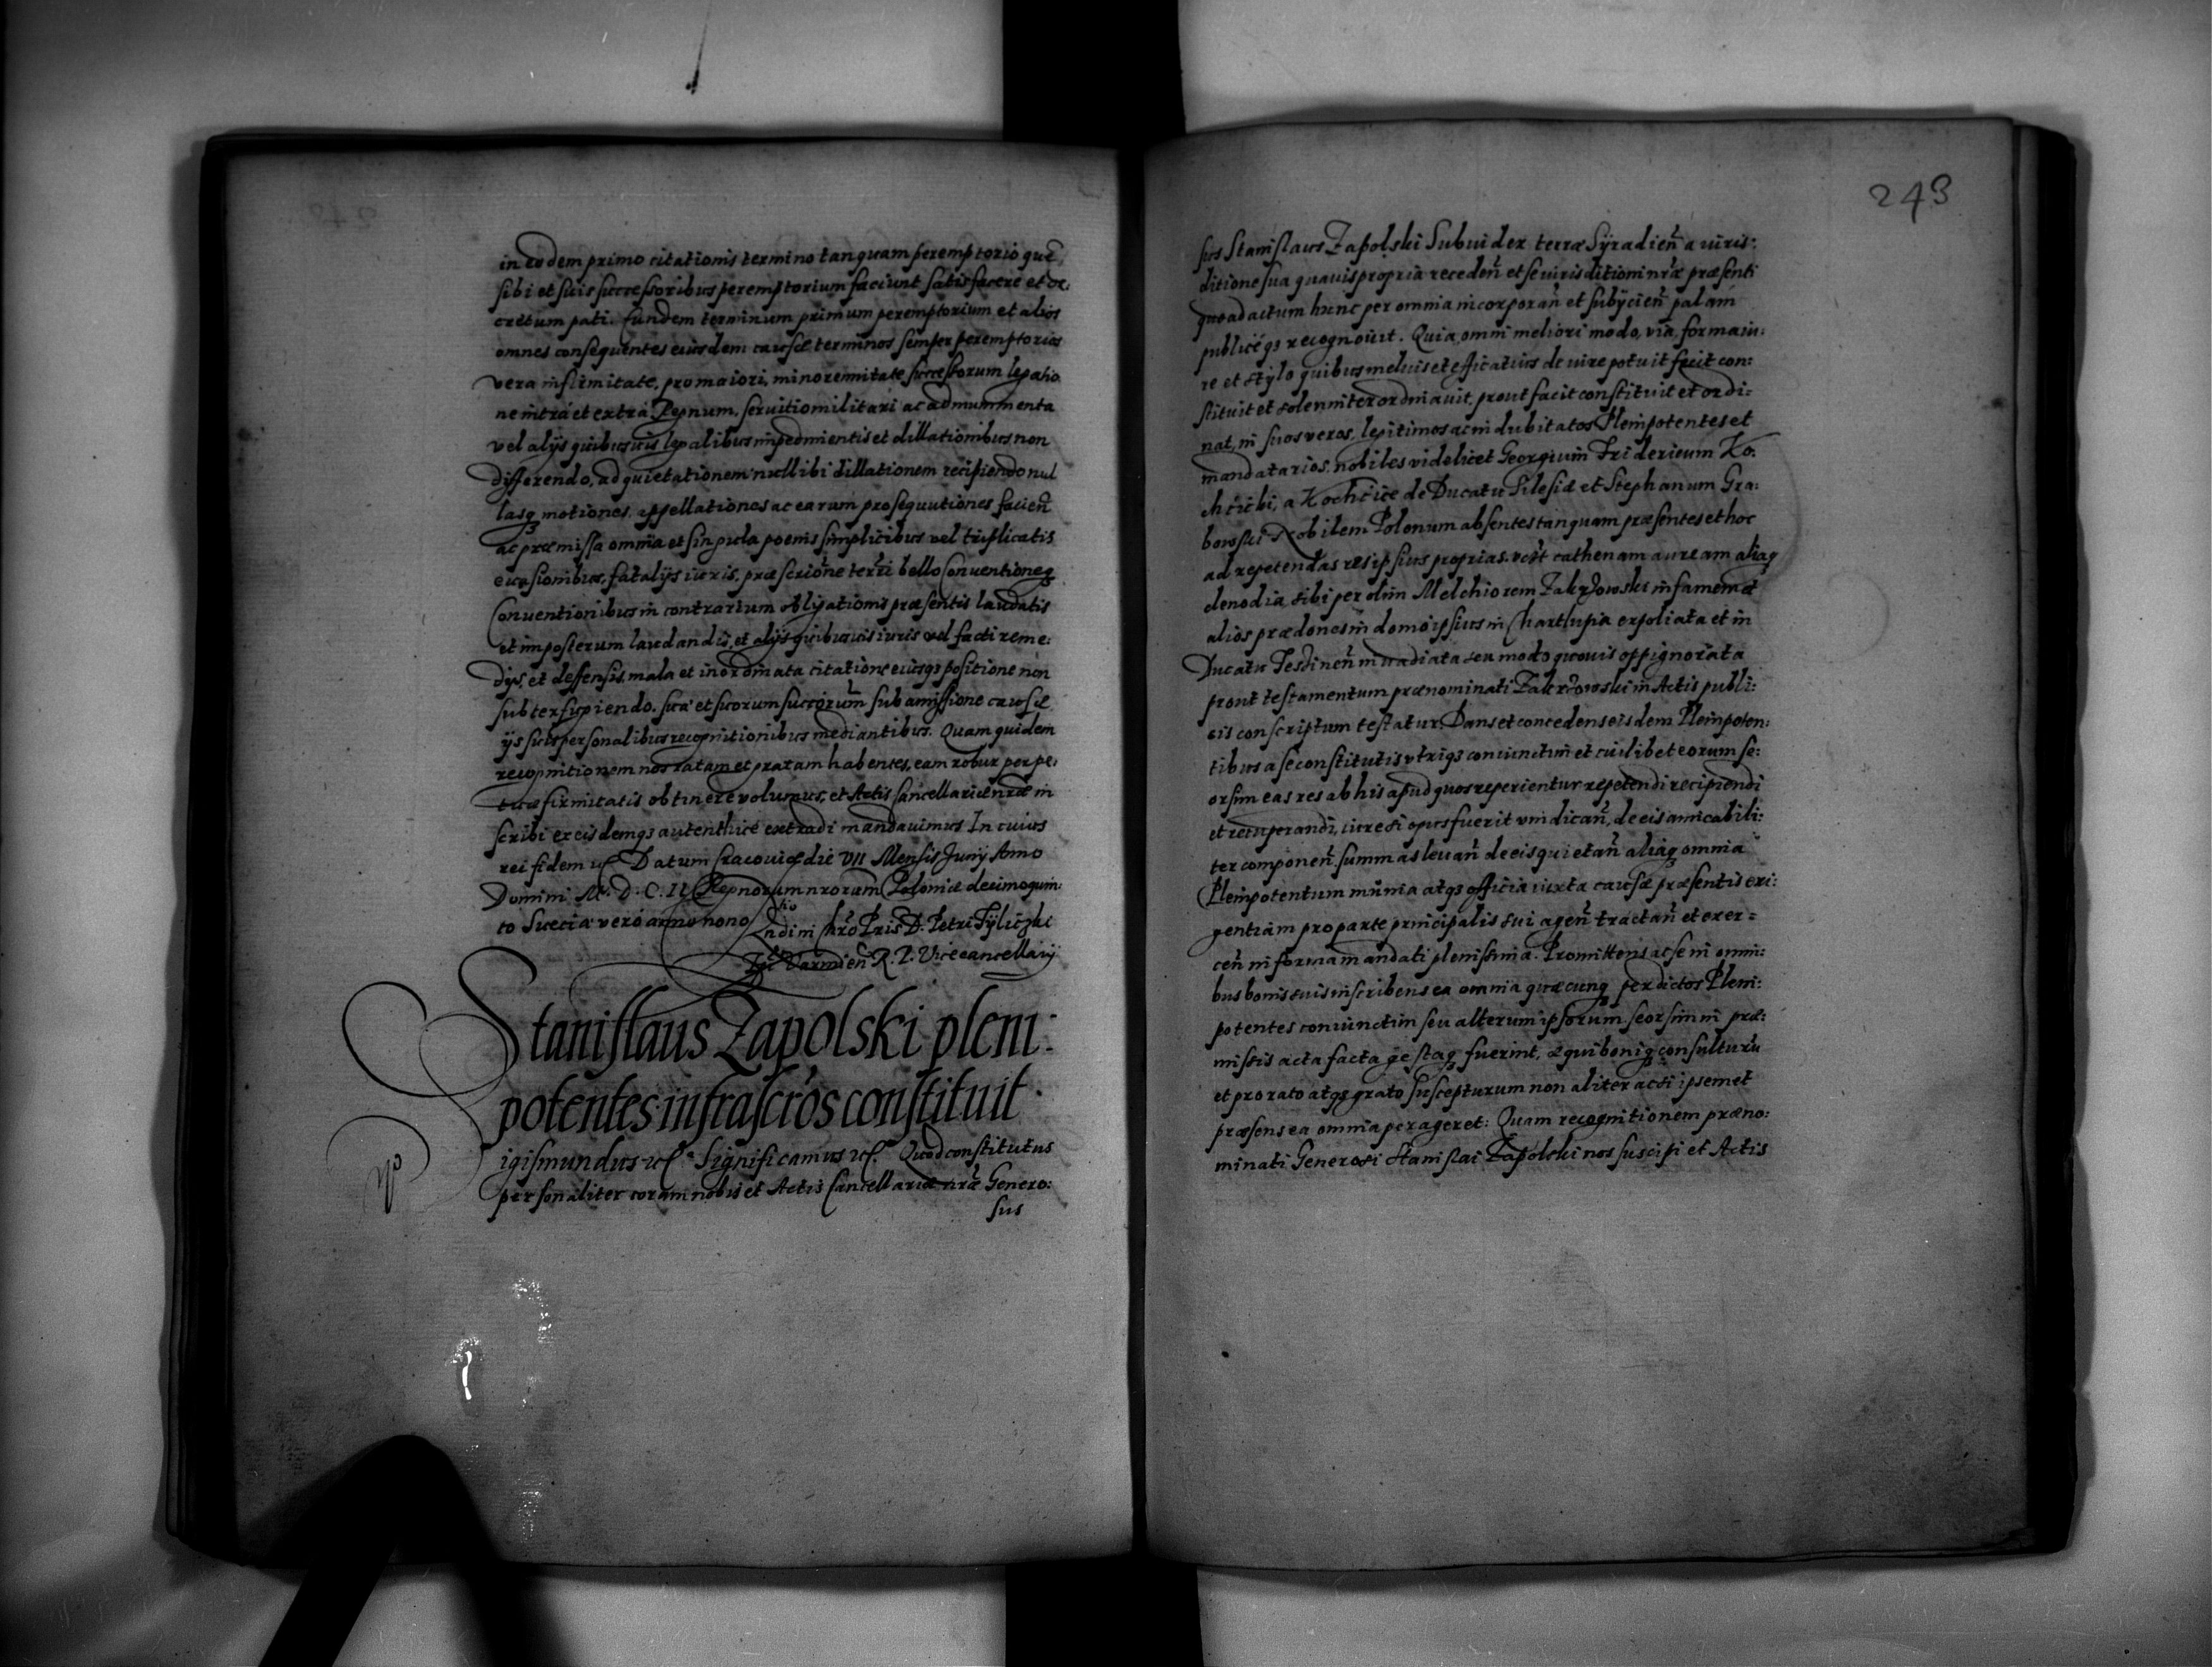 in eodem primo citationis termino tanquam peremptorio quē
sibi et suis successoribus peremptorium faciunt satisfacere et de:
cretum pati. Eundem terminum primum peremptorium et alios
omnes consequentes eiusdem causæ terminos semper peremptorios
vera infirmitate, pro maiori, minorennitate successorum legatio
ne intra et extra Regnum, seruitio militari ac ad munimenta
vel alijs quibusuis legalibus impedimentis et dillationibus non
differendo, ad quietationem nullibi dillationem recipiendo nul
lasq motiones, appellationes ac earum prosequutiones facien̄
ac præmissa omnia et singula poenis simplicibus vel triplicatis
euasionibus, fatalijs iuris, præscriōne terrī bello Conuentioneq
Conuentionibus in contrarium obligationis præsentis laudatis
et imposterum laudandis, et alijs quibusuis iuris vel facti reme:
dijs et deffensis, mala et inordinata citatione eiusqz positione non
subterfugiendo. sua et suorum succorum sub amissione causæ
ijs suis personalibus recognitionibus mediantibus. Quam quidem
recognitionem nos ratam et gratam habentes, eam robur perpe:
tuæ firmitatis obtinere volumus, et Actis Cancellariæ nræ in
scribi ex eisdemqz autenthice extradi mandauimus In cuius
rei fidem Datum Cracouiæ die VII Mensis Junij Anno
Domini M. D. C. II Regnorum nrorum Poloniæ decimo quin:
to Sueciæ vero anno nono Rndi in Chrō Pris D. Petri Tÿlickhi
Varmien R. P. Vicecancellarij
Stanislaus Zapolski pleni:
potentes infrascrōs constituit
igismundus Significamus Quod constitutus
personaliter coram nobis et Actis Cancellariæ nræ Genero:
sus
243
sus Stanislaus Zapolski Subiudex terræ Sÿradien̄ a iuris:
ditione sua quauis propria receden̄ et se iurisditioni nræ præsenti
quo ad actum hunc per omnia incorporan̄ et subÿcien̄ palam
publiceqz recognouit. Quia omni meliori modo, via, forma iu:
re et stÿlo quibus melius et efficatius de iure potuit fecit con:
stituit et solenniter ordinauit, prout facit constituit et ordi:
nat, in suos veros, legitimos ac indubitatos Plenipotentes et
mandatarios, nobiles videlicet Georgium Fridericum Ko:
chcicki, a Kochcice de Ducatu Silesiæ et Stephanum Gra:
bowski Nobilem Polonum absentes tanquam præsentes et hoc
ad repetendas res ipsius proprias, vczt cathenam auream aliaq
clenodia sibi per olim Melchiorem Zakrzowski infamem et
alios prædones in domo ipsius in Charłupia expoliata et in
Ducatu Tessinen̄ inuadiata seu modo quouis oppignorata
prout testamentum prænominati Zakrzowski in Actis publi:
cis conscriptum testatur. Dans et concedens eisdem Plenipoten:
tibus a se constitutis vtrisqz coniunctim et cuilibet eorum se:
orsim eas res ab his apud quos reperientur repetendi recipiendi
et recuperandi, iure si opus fuerit vindican̄, de eis amicabili:
ter componen̄ summas leuan̄ de eis quietan̄ aliaq omnia
Plenipotentum munia atqz officia iuxta causæ præsentis exi:
gentiam pro parte principalis sui agen̄ tractan̄ et exer=
cen̄ in forma mandati plenissima. Promittens ac se in omni:
bus bonis suis inscribens ea omnia quæcunq per dictos Pleni:
potentes coniunctim seu alterum ipsorum seorsim in præ:
missis acta facta gestaq fuerint, æqui boniq consulturū
et pro rato atqz grato suscepturum non aliter ac si ipsemet
præsens ea omnia perageret: Quam recognitionem præno:
minati Generosi Stanislai Zapolski nos suscipi et Actis